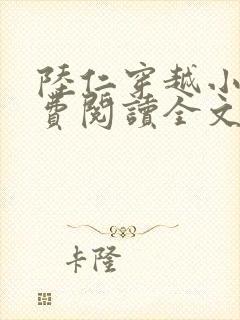 陸仁穿越小
費閱讀全文
卡隆